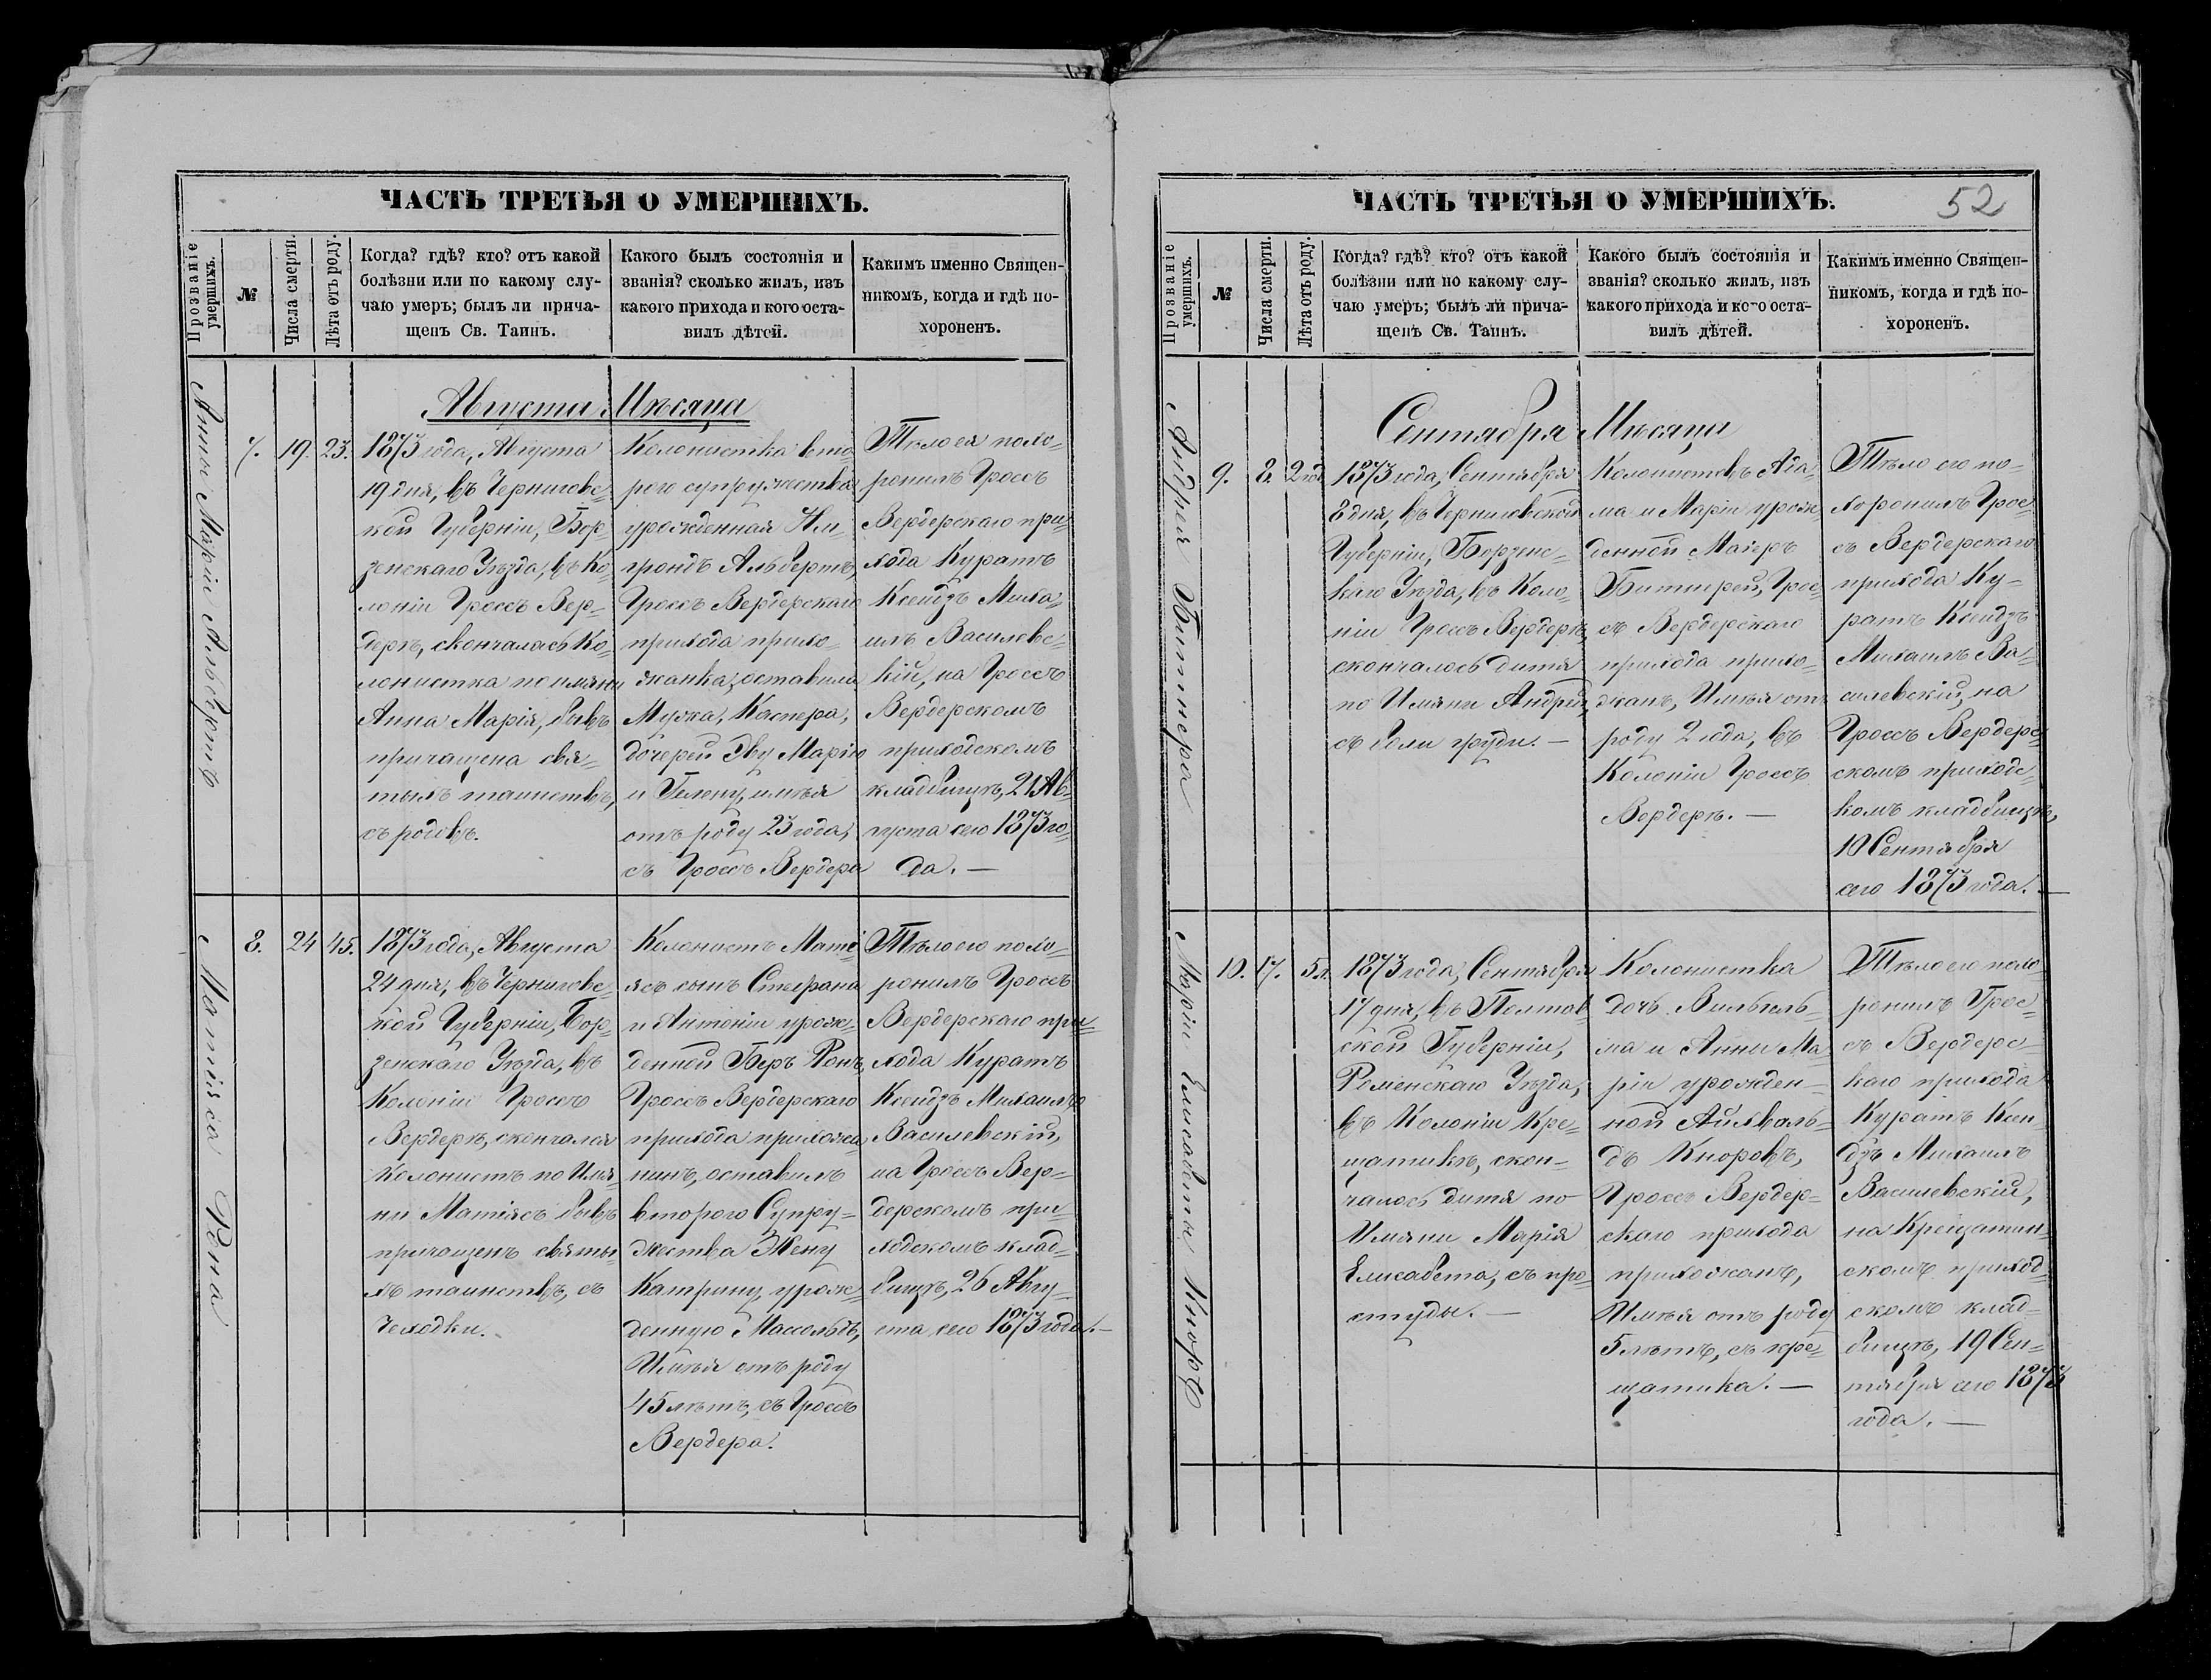 ЧАСТЬ ТРЕТЬЯ О УМЕРШИХЪ.
Прозваніе умершихъ.
№
Числа смерти.
Лѣта отъ роду.
Когда? гдѣ? кто? отъ какой
болѣзни или по какому слу-
чаю умеръ; былъ ли прича-
щенъ Св. Таинъ.
Какого былъ состоянія и
званія? сколько жилъ, изъ
какого прихода и кого оста-
вилъ дѣтей.
Какимъ именно Священ-
никомъ, когда и гдѣ по-
хороненъ.
Августа Мѣсяца
Анны Маріи Альбертъ
7.
19.
23.
1873 года, Августа
19 дня, въ Черниговс-
кой Губерніи, Бор-
зенскаго Уѣзда, въ Ко-
лоніи Гроссъ Вер-
деръ, скончалась Ко-
лонистка по имяни
Анна Марія, бывъ
причащена свя-
тыхъ таинствъ,
съ родовъ.
Колонистка вто-
рого супружества
урожденная
Альбертъ,
Гроссъ Вердерскаго
прихода прихо-
жанка, оставила
Мужа, Каспера,
дочерей Эву Марію
и имѣя
отъ роду 23 года,
съ Гроссъ Вердера
Тѣло ея похо-
ронилъ Гроссъ
Вердерскаго при-
хода Куратъ
Ксендзъ Миха-
илъ Василевс-
кій, на Гроссъ
Вердерскомъ
приходскомъ
кладбищѣ, 21 Ав-
густа сего 1873 го-
да. —
Матіяса Рона
8.
24
45.
1873 года, Августа
24 дня, въ Черниговс-
кой Губерніи, Бор-
зенскаго Уѣзда, въ
Колоніи Гроссъ
Вердеръ, скончался
Колонистъ по Имя-
ни Матіясъ бывъ
причащенъ святы-
хъ таинствъ, съ
Чеходки.
Колонистъ Маті-
ясъ сынъ Стефана
и Антоніи урож-
денной Беръ Ронъ,
Гроссъ Вердерскаго
прихода прихожа-
нинъ, оставилъ
второго Супру-
жества Жену
Катрину, урож-
денную
Имѣя отъ роду
45 лѣтъ, съ Гроссъ
Вердера.
Тѣло его похо-
ронилъ Гроссъ
Вердерскаго при-
хода Куратъ
Ксендзъ Михаилъ
Василевскій,
на Гроссъ Вер-
дерскомъ при-
ходскомъ клад-
бищѣ, 26 Авгу-
ста сего 1873 года. —
ЧАСТЬ ТРЕТЬЯ О УМЕРШИХЪ.
52
Прозваніе умершихъ.
№
Числа смерти.
Лѣта отъ роду.
Когда? гдѣ? кто? отъ какой
болѣзни или по какому слу-
чаю умеръ; былъ ли прича-
щенъ Св. Таинъ.
Какого былъ состоянія и
званія? сколько жилъ, изъ
какого прихода и кого оста-
вилъ дѣтей.
Какимъ именно Священ-
никомъ, когда и гдѣ по-
хороненъ.
Сентября Мѣсяца
Андрея Битнера
9.
8.
2 год
1873 года, Сентября
8 дня, въ Черниговской
Губерніи, Борзенс-
каго Уѣзда, въ Коло-
ніи Гросъ Вердеръ,
скончалось дитя
по Имяни Андрей,
съ боли груди. —
Колонистовъ Ада-
ма и Маріи урож-
денной Маіеръ
Битнерей, Грос-
съ Вердерскаго
прихода прихо-
жанъ, Имѣя отъ
роду 2 года, въ
Колоніи Гроссъ
Вердеръ. —
Тѣло его по-
хоронилъ Грос-
съ Вердерскаго
прихода Ку-
ратъ Ксендзъ
Михаилъ Ва-
силевскій, на
Гроссъ Вердерс-
скомъ приходс-
комъ кладбищѣ,
10 Сентября
сего 1873 года. —
Маріи Елисабеты Кноръ
10.
17.
5 л.
1873 года, Сентября
17 дня, въ Полтав-
ской Губерніи,
Роменскаго Уѣзда,
въ Колоніи Кре-
щатикъ, скон-
чалось дитя по
Имяни Марія
Елисабета, съ про-
студы. —
Колонистка
дочь Вильгель-
ма и Анны Ма-
ріи урожден-
ной Айхваль-
дъ Кноровъ,
Гроссъ Вердер-
скаго прихода
прихожанъ,
Имѣя отъ роду
5 лѣтъ, съ Кре-
щатика. —
Тѣло его похо-
ронилъ Грос-
съ Вердерс-
каго прихода
Куратъ Ксен-
дзъ Михаилъ
Василевскій,
на Крещатин-
скомъ приход-
скомъ клад-
бищѣ, 19 Сен-
тября сего 1873
года. —